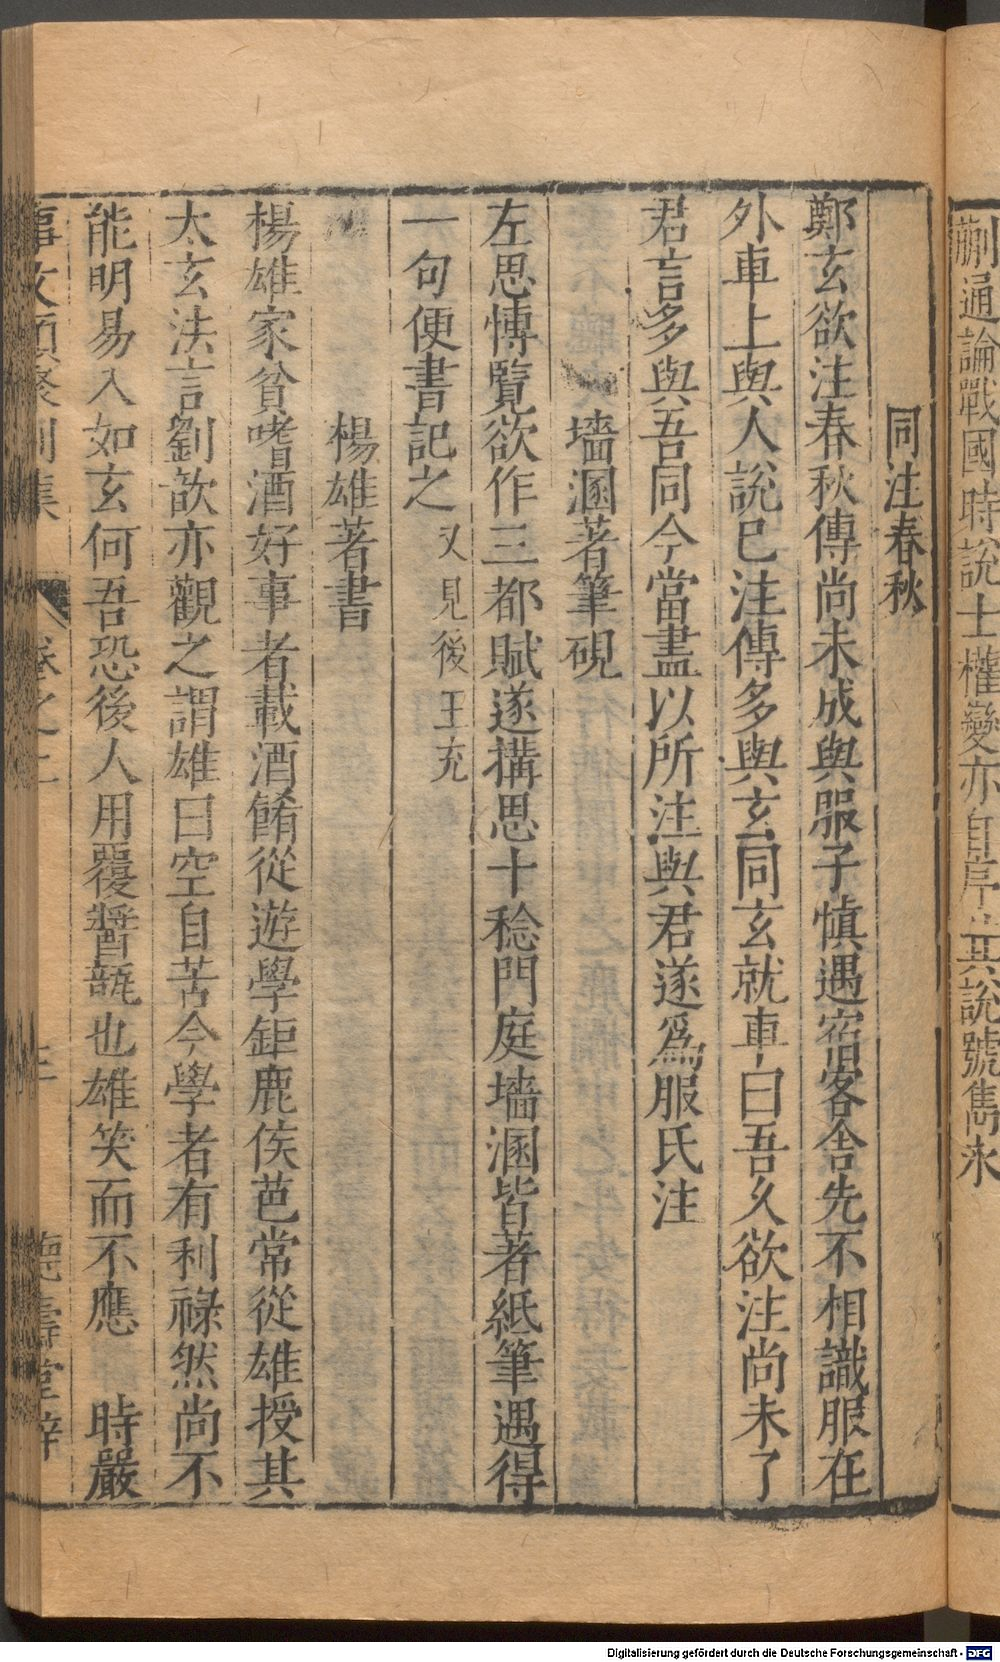 蒯通論戰國時說士權變亦自序其說號雋永
同注春秋
鄭玄欲注春秋傳尚未成與服子慎遇宿客舍先不相識服在
外車上與人說已注傳多與玄同玄就車曰吾久欲注尚未了
君言多與吾同今當盡以所注與君遂爲服氏注
墻溷著筆硯
左思愽覽欲作三都賦遂搆思十稔門庭墻溷皆著紙筆遇得
一句便書記之 又見後王充
楊雄著書
楊雄家貧嗜酒好事者載酒餚從遊學鉅鹿侯芭常從雄授其
太玄法言劉歆亦觀之謂雄曰空自苦今學者有利祿然尚不
能明易入如玄何吾恐後人用覆醬瓿也雄笑而不應 時嚴
事文類聚別集 卷之二 三 德壽堂梓
Digitalisierung gefördert durch die Deutsche Forschungsgemeinschaft - DFG